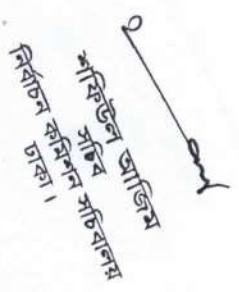 শফিউল আজিম
সচিব
নির্বাচন কমিশন সচিবালয়
ঢাকা।